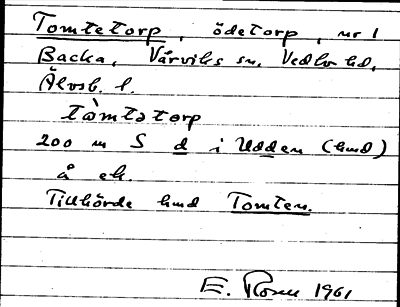 Tomtetorp, ödetorp, nr 1
Backa, Vårviks sn, Vedbo hd,
Älvsb. l.
tòmtətorp
200 m S d i Udden (hmd)
å ek.
Tillhörde hmd Tomten.
E. Rosm 1961